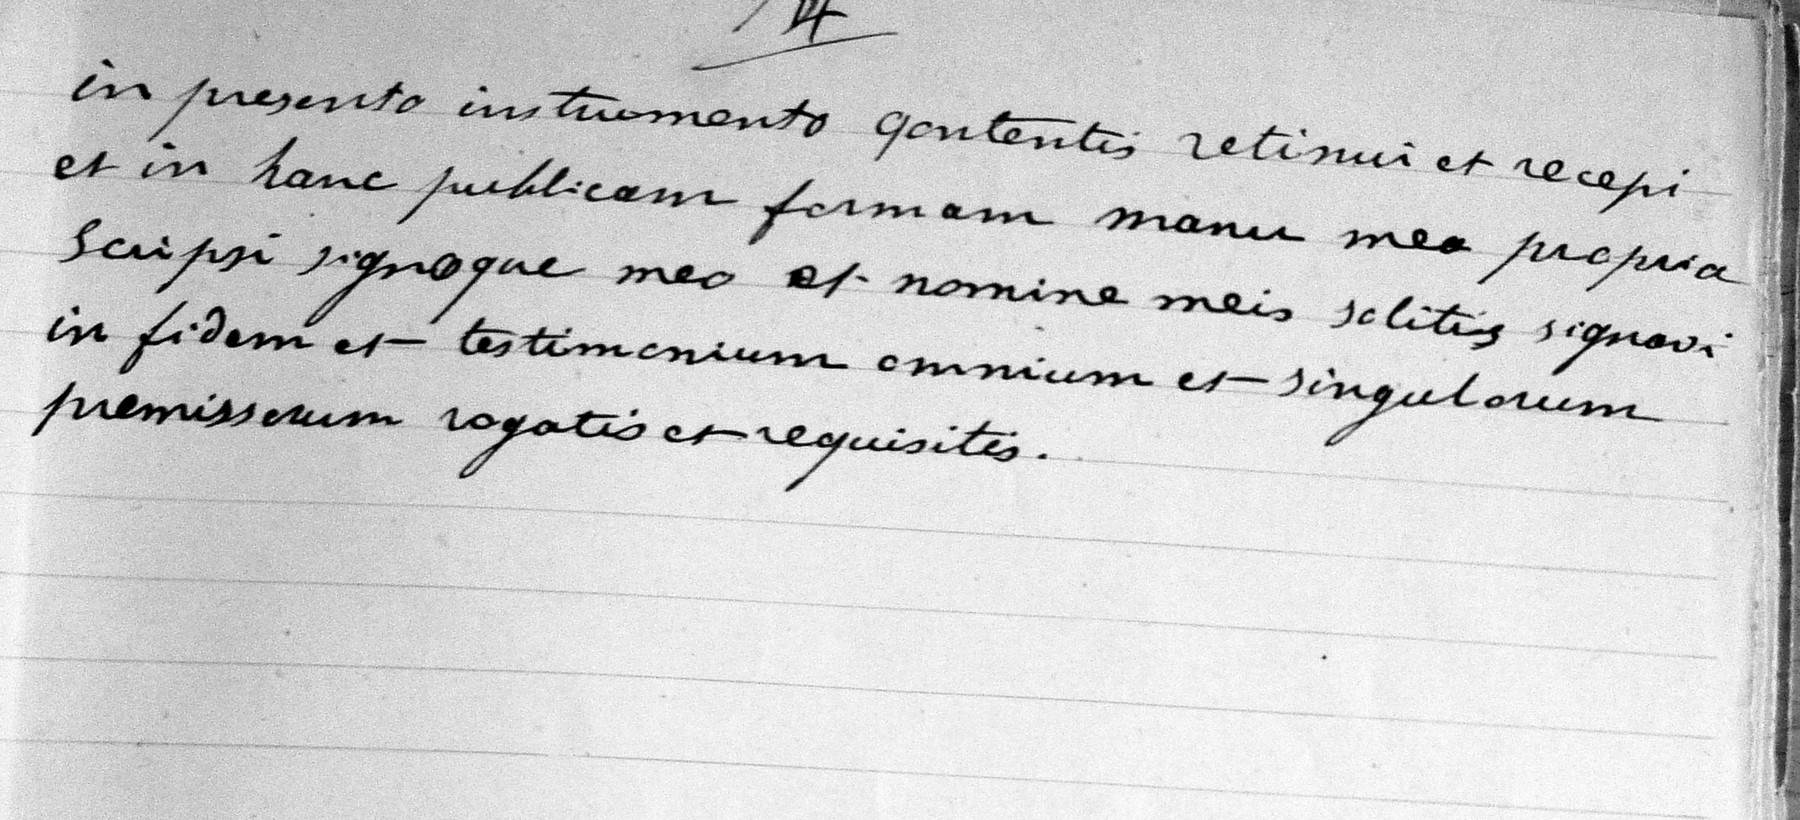 in presento instruomento qontentis retinui et recepi
et in hanc publicam formam manu mea propria
scripsi signoque meo et nomine meis solitis signavi
in fidem et testimonium omnium et singulorum
premissorum rogatis et requisitis.